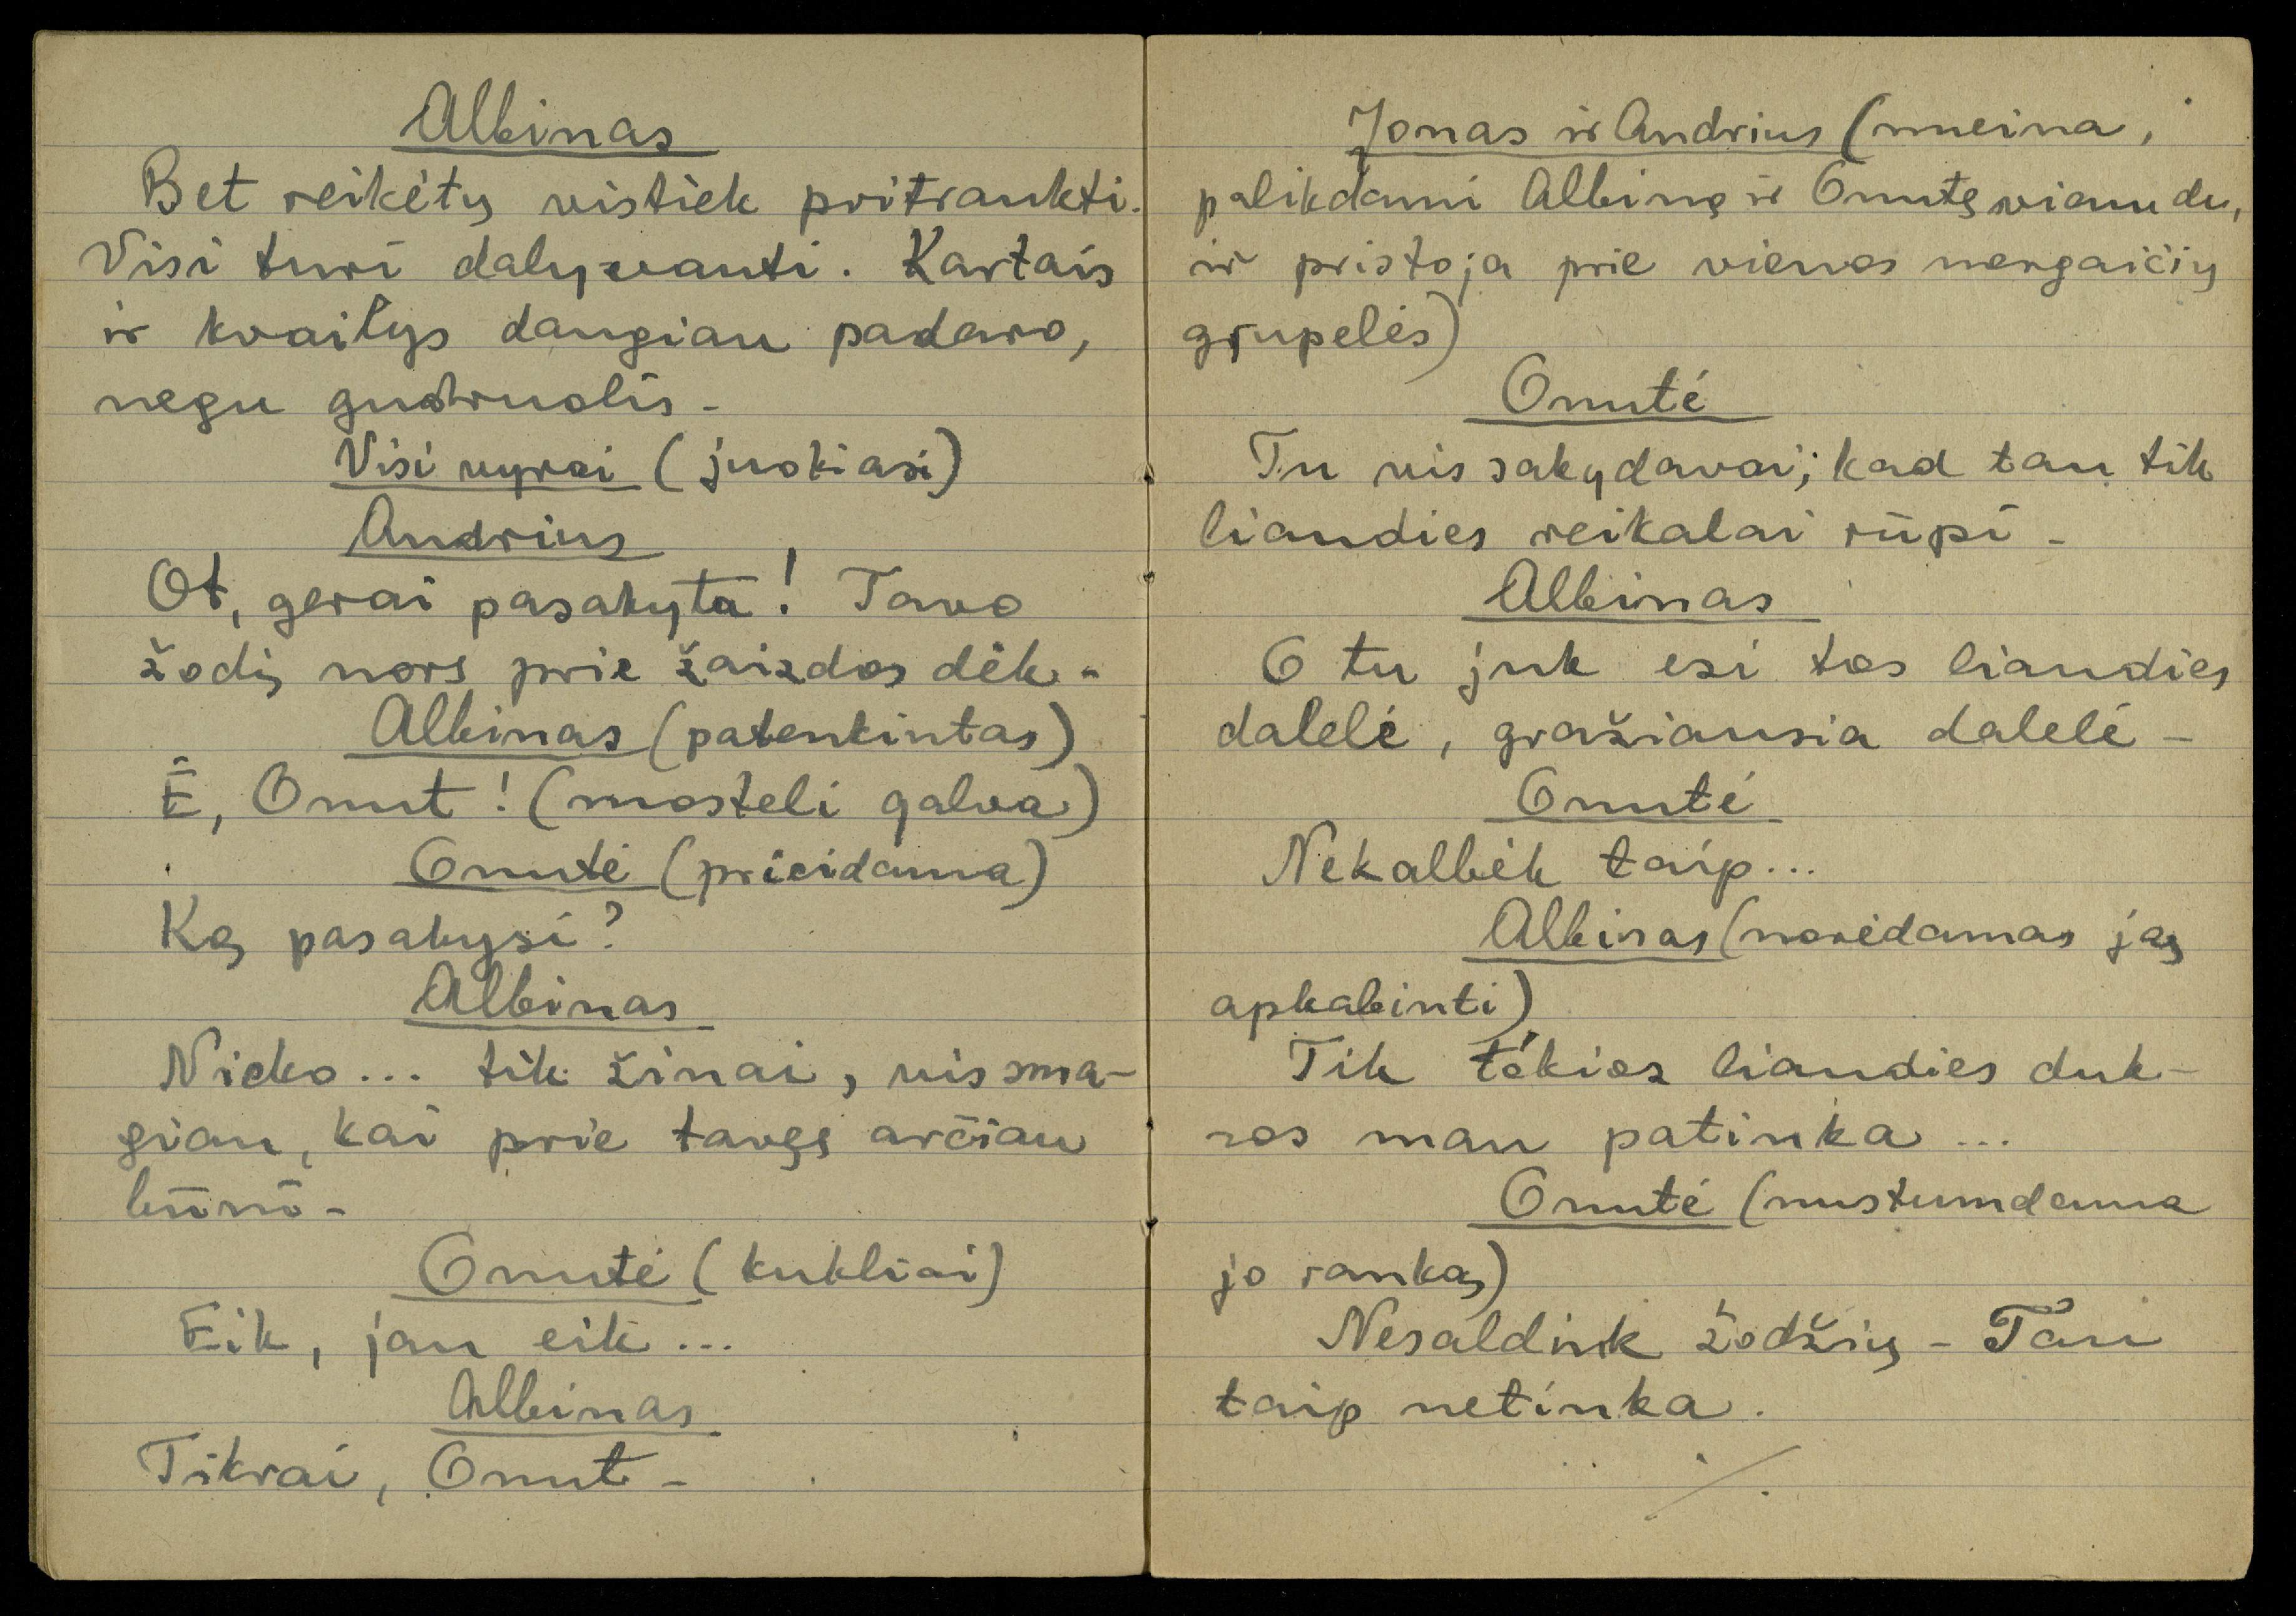 Albinas
Bet reikėtų vistiek pritraukti.
Visi turi dalyvauti. Kartais
ir kvailys daugiau padaro,
negu gudruolis -
Visi vyrai (juokiasi)
Andrius
Ot, gerai pasakyta! Tavo
žodį nors prie žaizdos dėk -
Albinas (patenkintas)
Ė, Onut! (mosteli galva)
Onutė (prieidama)
Ką pasakysi?
Albinas
Nieko... tik žinai, vis sma-
giau, kai prie tavęs arčiau
būni -
Onutė (kukliai)
Eik, jau eik...
Albinas
Tikrai, Onut -
Jonas ir Andrius (nueina,
palikdami Albiną ir Onutę vienudu,
ir pristoja prie vienos mergaičių
grupelės)
Onutė
Tu vis sakydavai, kad tau tik
liaudies reikalai rūpi -
Albinas
O tu juk esi tos liaudies
dalelė, gražiausia dalelė -
Onutė
Nekalbėk taip...
Albinas (norėdamas ją
apkabinti)
Tik tokios liaudies duk-
ros man patinka...
Onutė (nustumdama
jo ranką)
Nesaldink žodžių - Tau
taip netinka.